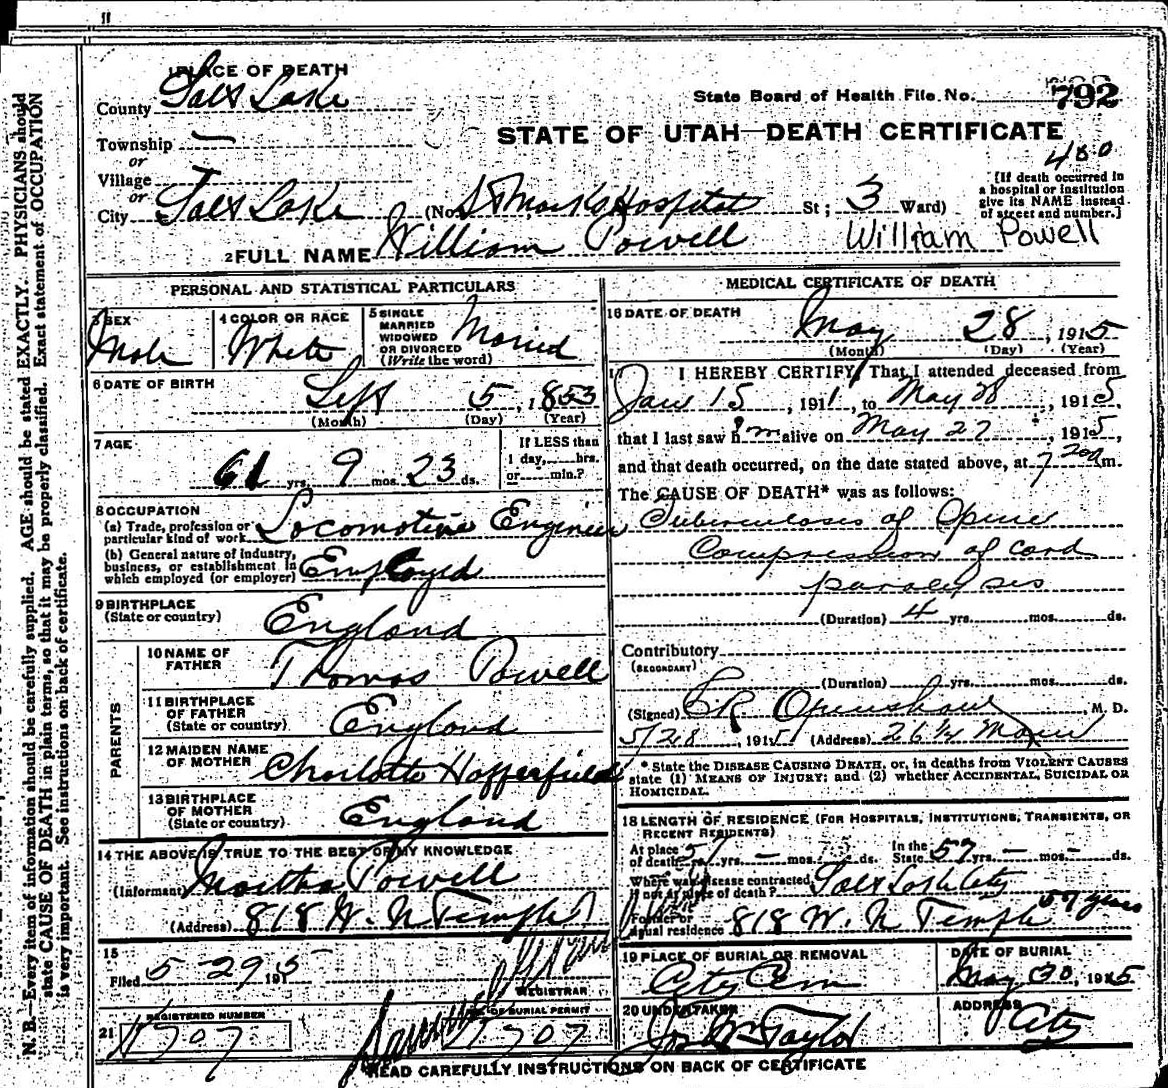 PLACE OF DEATH
County Salt Lake
State Board of Health File No. 792
STATE OF UTAH—DEATH CERTIFICATE
Township —
or
Village
or
City Salt Lake (No. St Marks Hospital St; 3 Ward)
400
[If death occurred in
a hospital or institution
give its NAME instead
of street and number.]
2 FULL NAME William Powell
William Powell
PERSONAL AND STATISTICAL PARTICULARS
3 SEX
Male
4 COLOR OR RACE
White
5 SINGLE
MARRIED
WIDOWED
OR DIVORCED
(Write the word)
Married
6 DATE OF BIRTH
Sept 5, 1853
(Month) (Day) (Year)
7 AGE
61 yrs. 9 mos. 23 ds.
If LESS than
1 day,......hrs.
or......min.?
8 OCCUPATION
(a) Trade, profession or
particular kind of work Locomotive Engineer
(b) General nature of industry,
business, or establishment in
which employed (or employer) Employed
9 BIRTHPLACE
(State or country) England
PARENTS
10 NAME OF
FATHER Thomas Powell
11 BIRTHPLACE
OF FATHER
(State or country) England
12 MAIDEN NAME
OF MOTHER
Charlotte Hofferfield
13 BIRTHPLACE
OF MOTHER
(State or country) England
14 THE ABOVE IS TRUE TO THE BEST OF MY KNOWLEDGE
(Informant) Martha Powell
(Address) 818 W. N Temple
15
Filed 5-29 1915
REGISTRAR
REGISTERED NUMBER
NO. OF BURIAL PERMIT
21
MEDICAL CERTIFICATE OF DEATH
16 DATE OF DEATH
May 28, 1915
(Month) (Day) (Year)
17 I HEREBY CERTIFY, That I attended deceased from
Jan 15, 1911, to May 28, 1915,
that I last saw him alive on May 27, 1915,
and that death occurred, on the date stated above, at 7 20 a m.
The CAUSE OF DEATH* was as follows:
Tuberculosis of Spine
Compression of Cord
paralysis
(Duration) 4 yrs. mos. ds.
Contributory
(SECONDARY)
(Duration) yrs. mos. ds.
(Signed) E R Openshaw, M. D.
5/28, 1915 (Address) 26 1/2 Main
*State the DISEASE CAUSING DEATH, or, in deaths from VIOLENT CAUSES
state (1) MEANS OF INJURY; and (2) whether ACCIDENTAL, SUICIDAL OR
HOMICIDAL.
18 LENGTH OF RESIDENCE (FOR HOSPITALS, INSTITUTIONS, TRANSIENTS, OR
RECENT RESIDENTS)
At place
of death 57 yrs. — mos. ds. In the
State 57 yrs. — mos. — ds.
Where was disease contracted
if not at place of death? Salt Lake City
Former or
usual residence 818 W. N Temple 57 years
19 PLACE OF BURIAL OR REMOVAL
City Cem
DATE OF BURIAL
May 30, 1915
20 UNDERTAKER
Jos Wm Taylor
ADDRESS
City
READ CAREFULLY INSTRUCTIONS ON BACK OF CERTIFICATE
N. B.—Every item of information should be carefully supplied. AGE should be stated EXACTLY. PHYSICIANS should
state CAUSE OF DEATH in plain terms, so that it may be properly classified. Exact statement of OCCUPATION
is very important. See instructions on back of certificate.